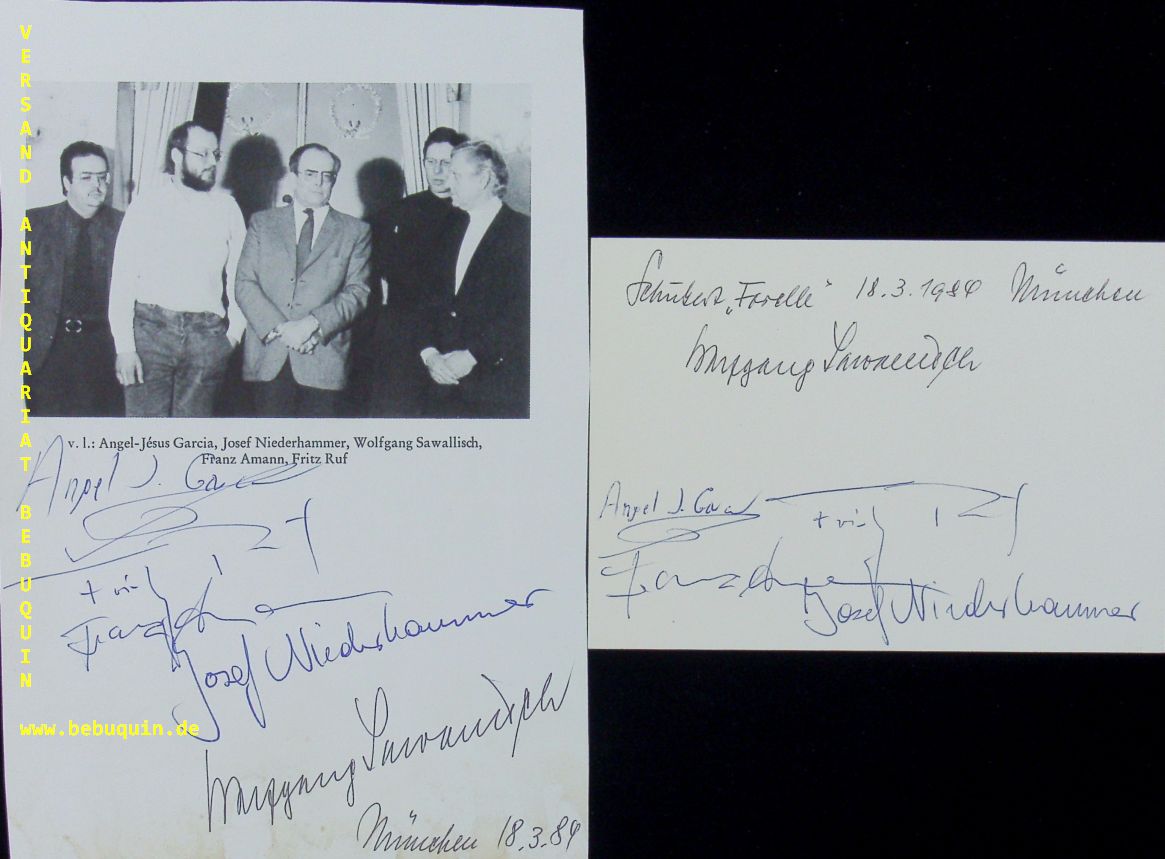 VERSAND ANTIQUARIAT BEBUQUIN
www.bebuquin.de
v. l.: Angel-Jésus Garcia, Josef Niederhammer, Wolfgang Sawallisch,
Franz Amann, Fritz Ruf
Angel J. Garcia
Franz Amann
Josef Niederhammer
Wolfgang Sawallisch
München 18.3.84
Schubert „Forelle“ 18.3.1984 München
Wolfgang Sawallisch
Angel J. Garcia
Franz Amann
Josef Niederhammer